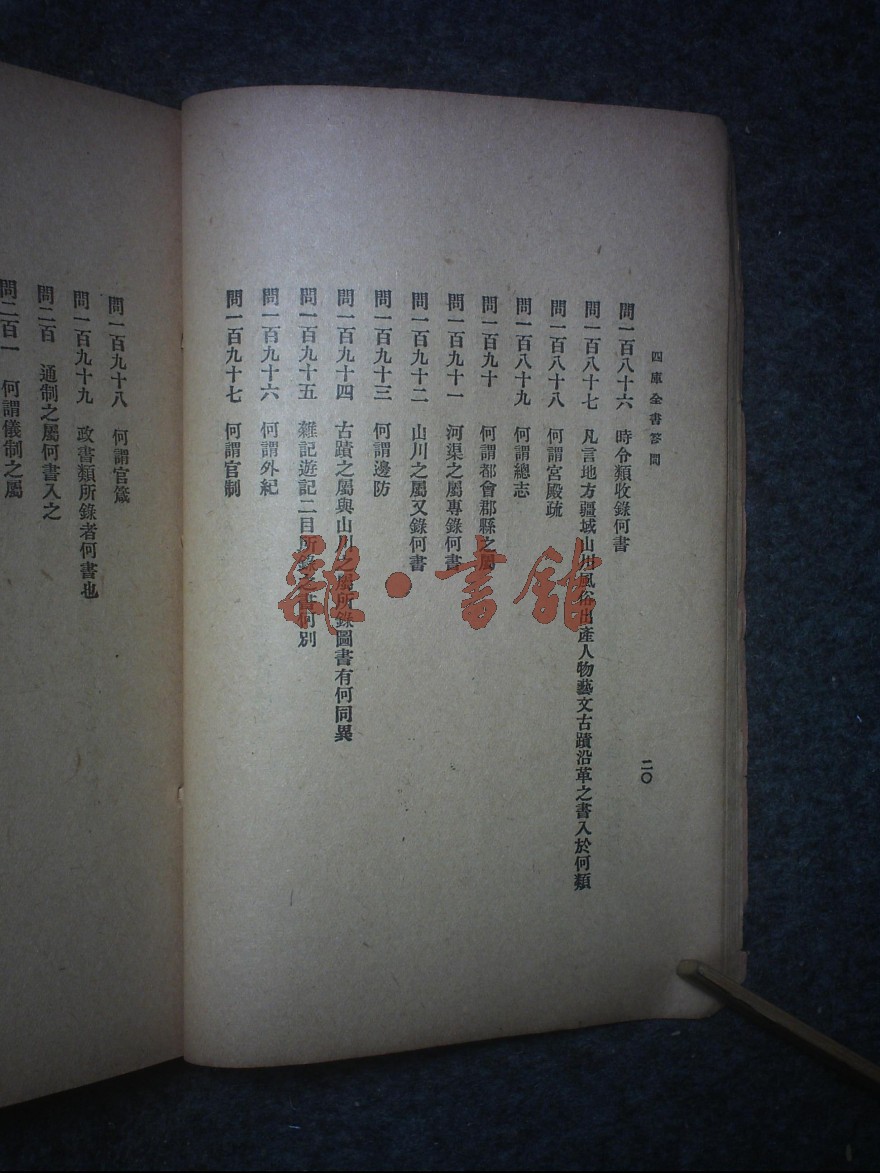 四庫全書答問
二〇
問一百八十六　時令類收錄何書
問一百八十七　凡言地方疆域山川風俗出產人物藝文古蹟沿革之書入於何類
問一百八十八　何謂宮殿疏
問一百八十九　何謂總志
問一百九十　何謂都會郡縣之屬
問一百九十一　河渠之屬專錄何書
問一百九十二　山川之屬又錄何書
問一百九十三　何謂邊防
問一百九十四　古蹟之屬與山川之屬所錄圖書有何同異
問一百九十五　雜記遊記二目所錄之書何別
問一百九十六　何謂外紀
問一百九十七　何謂官制
問一百九十八　何謂官箴
問一百九十九　政書類所錄者何書也
問二百　通制之屬何書入之
問二百一　何謂儀制之屬
雜·書館